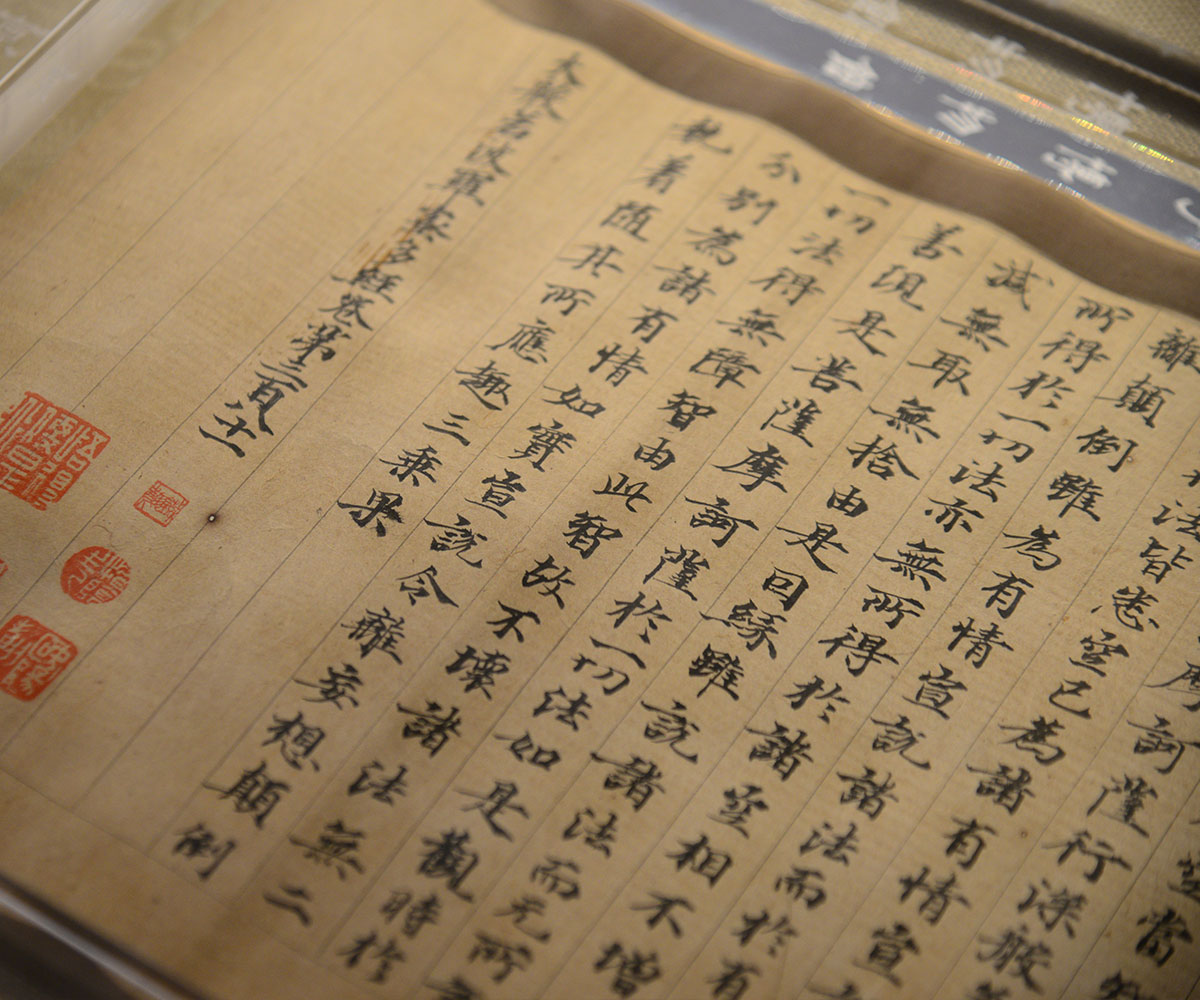 摩訶薩行深般
法皆悉空已為諸有情宣
離顛倒雖為有情宣說諸法而於有
所得於一切法亦無所得於諸空相不增
減無取無捨由是因緣雖說諸法而无所
善現是菩薩摩訶薩於一切法如是觀時於
一切法得無障智由此智故不壞諸法無二
分別為諸有情如實宣說令離妄想顛倒
執著隨其所應趣三乘果
大般若波羅蜜多經卷第三百八十一